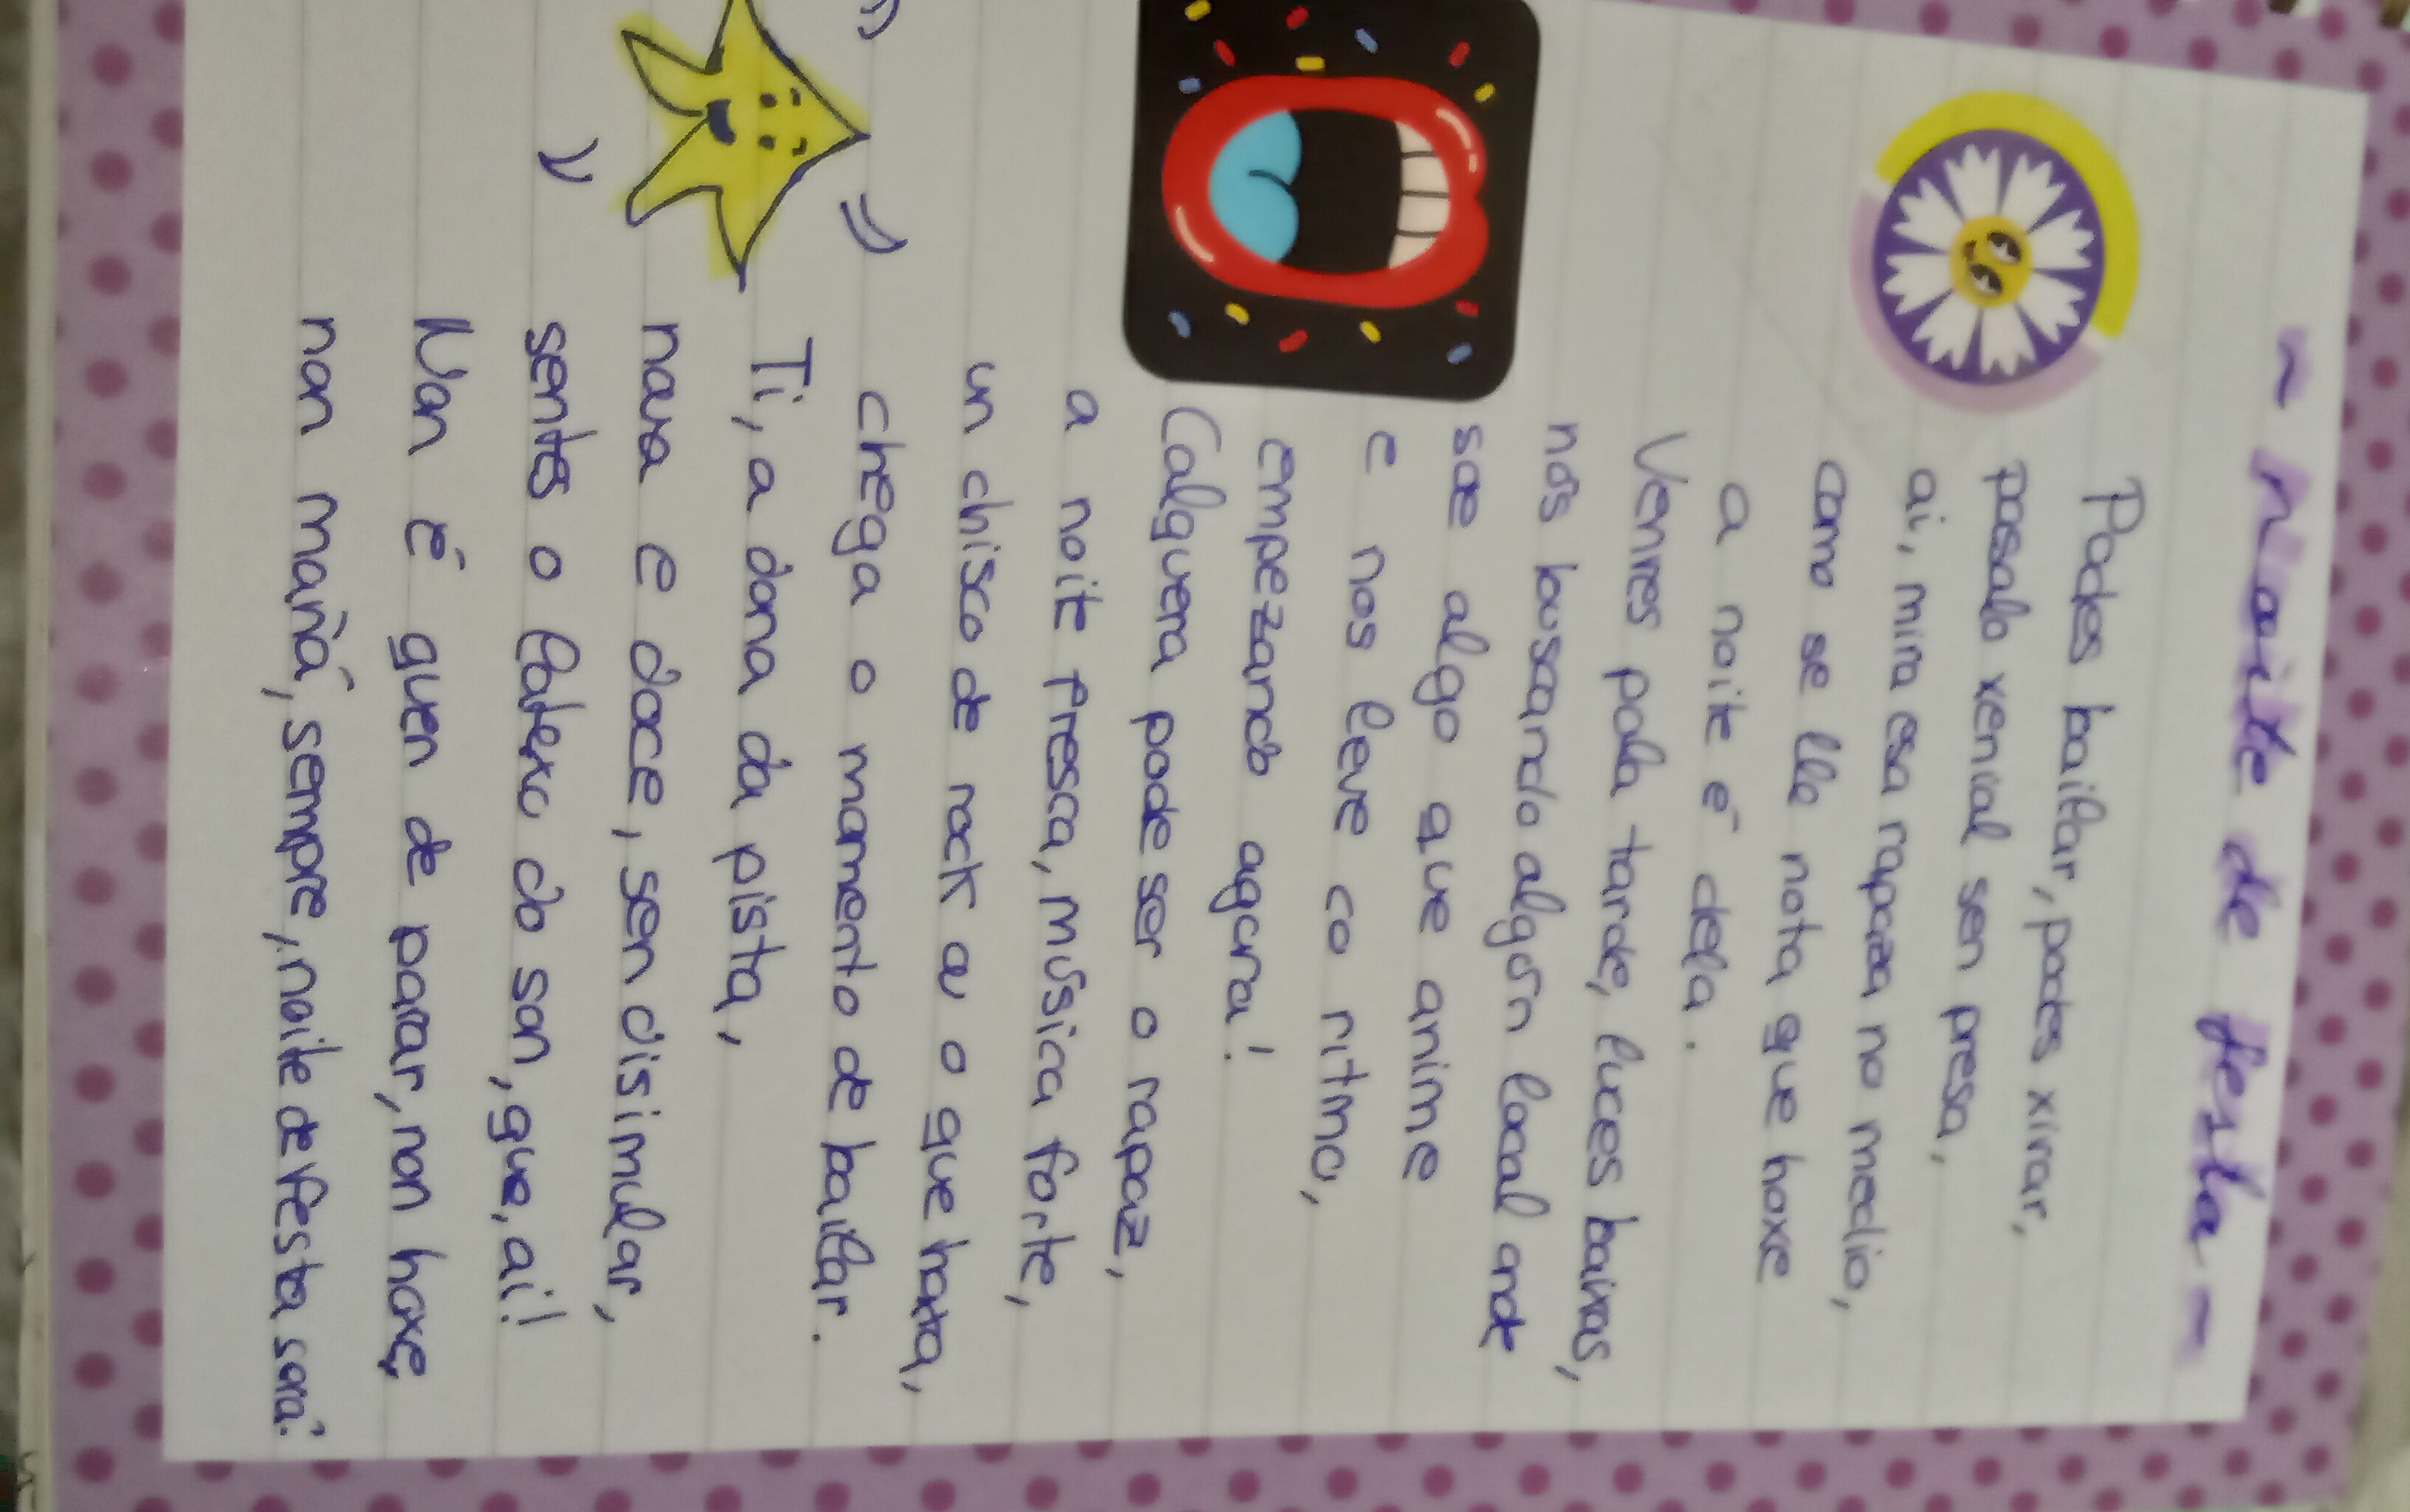 ~ Noite de festa ~
Podes bailar, podes xirar,
pasalo xenial sen presa,
ai, mira esa rapaza no medio,
como se lle nota que hoxe
a noite é dela.
Venres pola tarde, luces baixas,
nós buscando algún local onde
soe algo que anime
e nos leve co ritmo,
empezando agora!
Calquera pode ser o rapaz,
a noite fresca, música forte,
un chisco de rock ou o que haxa,
chega o momento de bailar.
Ti, a dona da pista,
nova e doce, sen disimular,
sentes o latexo do son, que, ai!
Non é quen de parar, non hoxe,
non mañá, sempre, noite de festa será.